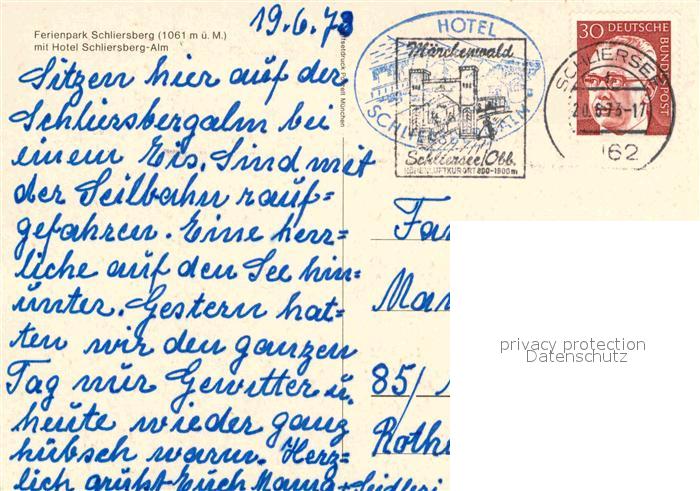 19.6.73
Ferienpark Schliersberg (1061 m ü. M.)
mit Hotel Schliersberg-Alm
Sitzen hier auf der
Schliersbergalm bei
einem Eis. Sind mit
der Seilbahn rauf-
gefahren. Eine herr=
liche auf den See hin=
unter. Gestern hat=
ten wir den ganzen
Tag nur Gewitter u.
heute wieder ganz
hübsch warm. Herz=
lich grüßt Euch Mama +
HOTEL
Märchenwald
Schliersee/Obb.
HÖHENLUFTKURORT 800-1800m
30 DEUTSCHE
BUNDESPOST
SCHLIERSEE
20.6.73-17
162
Fa
Ma
85/
Roth
privacy protection
Datenschutz